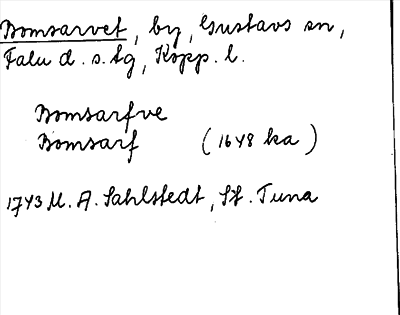 Bomsarvet, by, Gustavs sn,
Falu d. s. tg, Kopp. l.
Bomsarfve
Bomsarf (1648 ka)
1743 M. A. Sahlstedt, St. Tuna